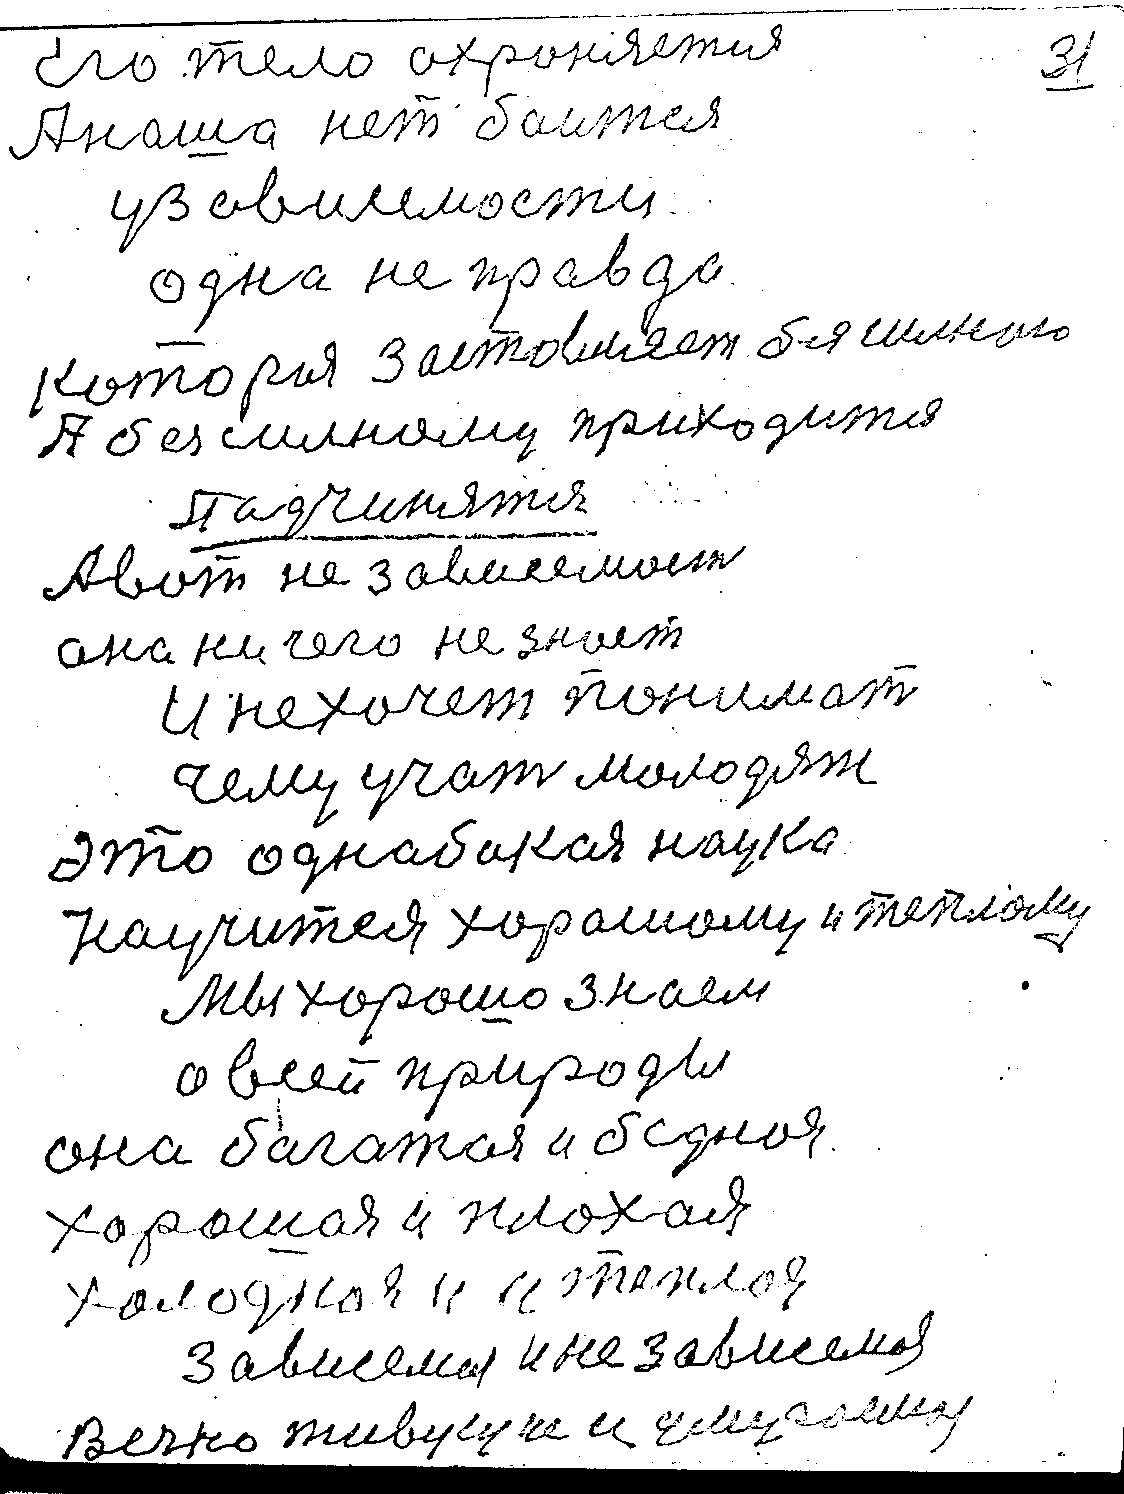 Его тело охроняется
31
А наша нет боится
из овисемости
одна не правда
котория Застовляет бяссилного
А безсилному приходится
Падчинятся
А вот не зависемост
она ничего не знает
И не хочет понимат
чему учат молодяж
Это однабокая наука
Научится хорошому и теплому
Мы хорошо знаем
о всей природы
она багатоя и бедноя
хорошая и плохая
холодноя и и теплоя
Зависемоя и не зависемоя
Вечно и